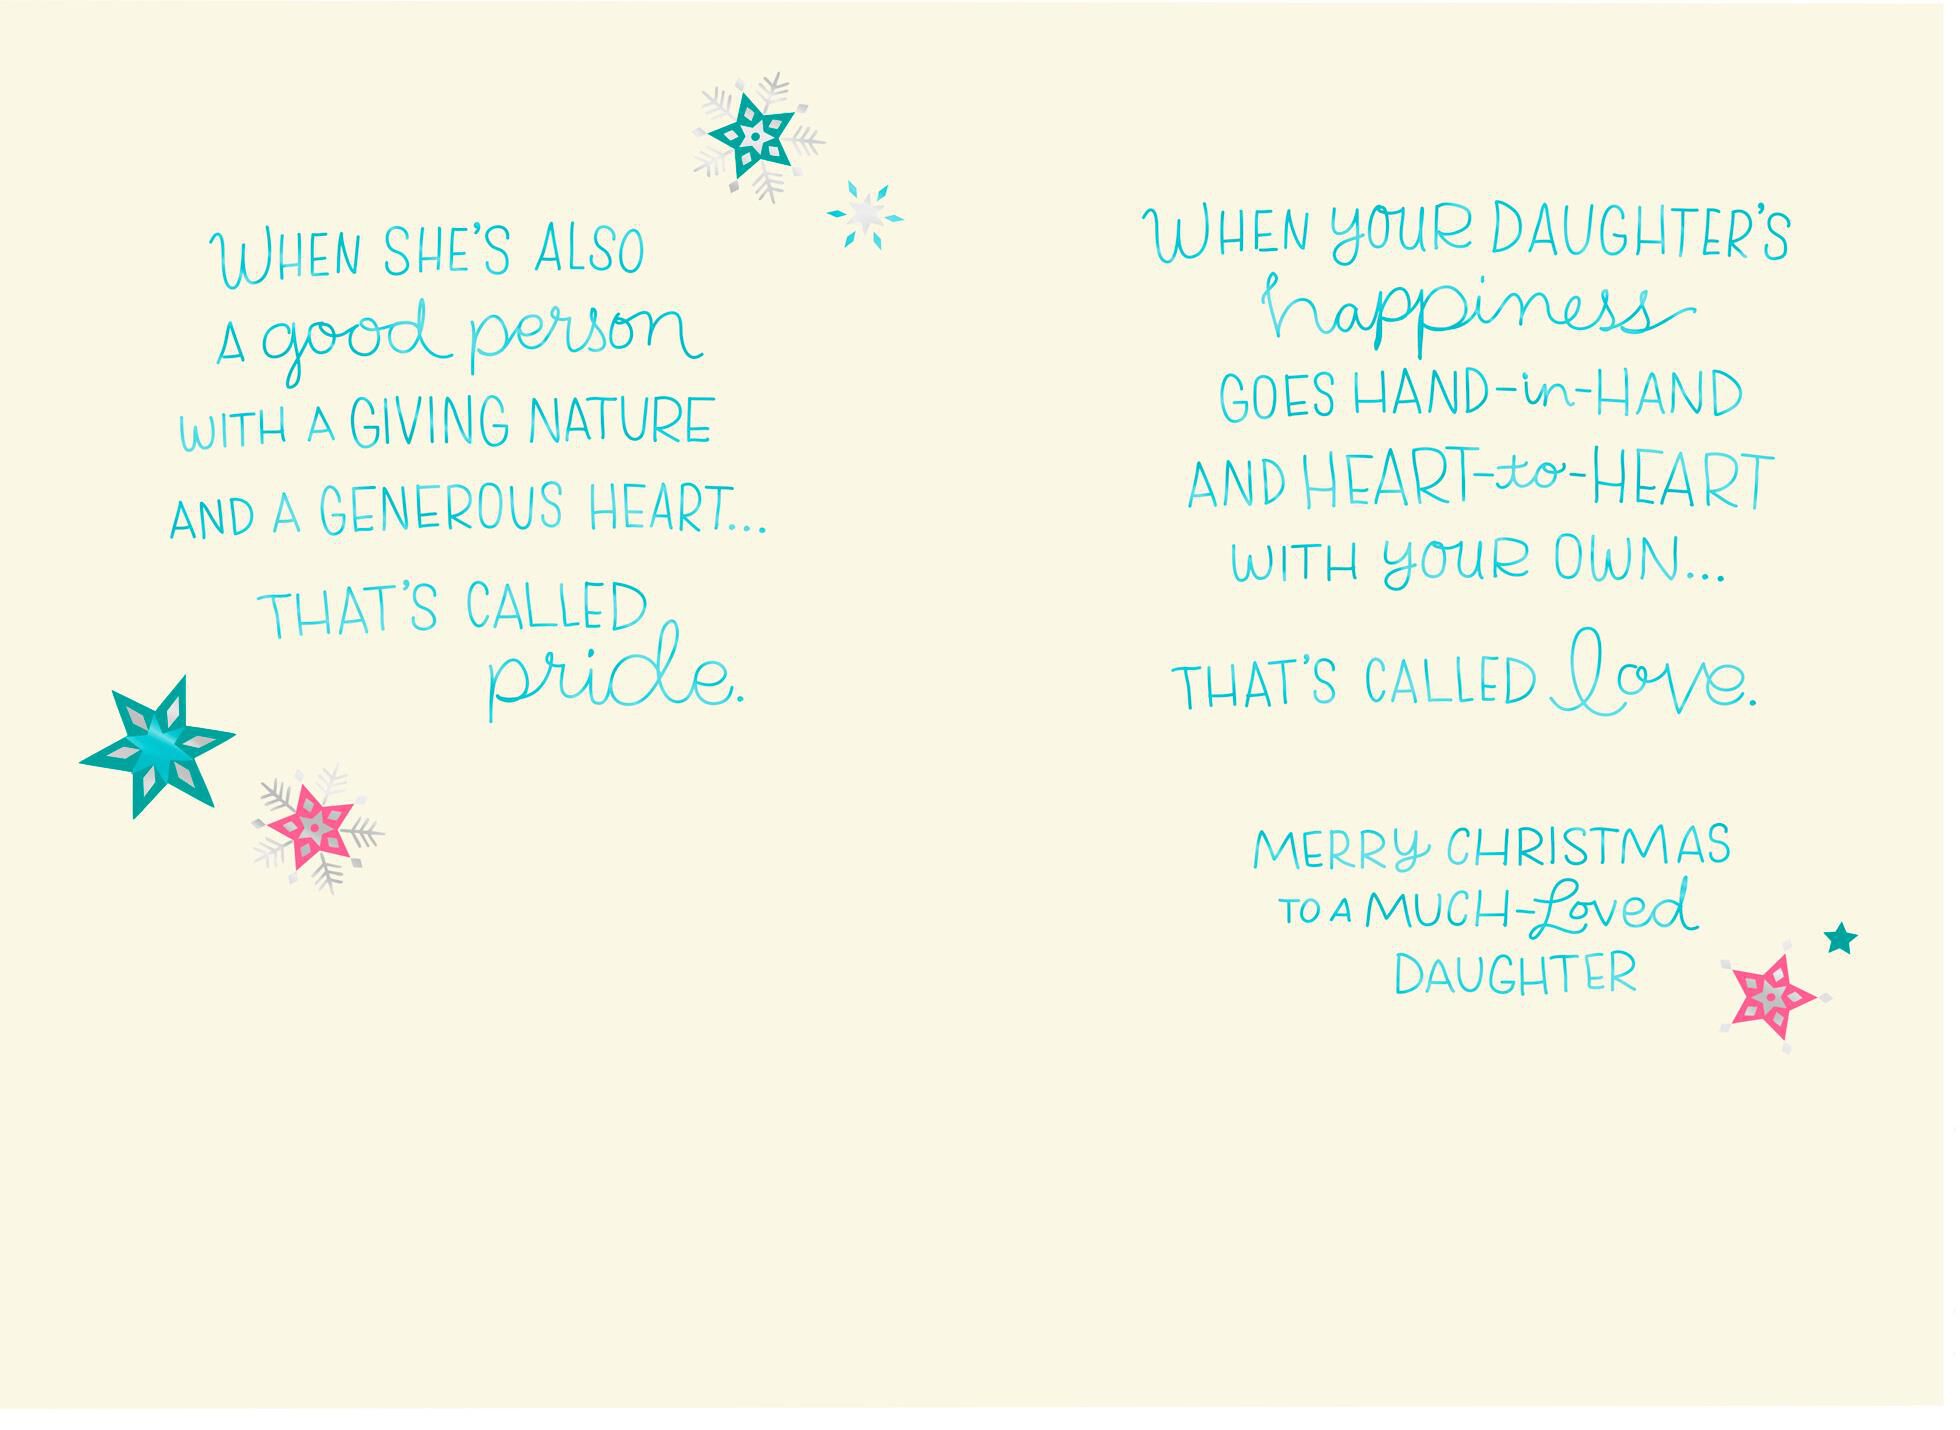 WHEN SHE'S ALSO
A good person
WITH A GIVING NATURE
AND A GENEROUS HEART...
THAT'S CALLED
pride.
WHEN YOUR DAUGHTER'S
happiness
GOES HAND-in-HAND
AND HEART-to-HEART
WITH YOUR OWN...
THAT'S CALLED love.
MERRY CHRISTMAS
TO A MUCH-Loved
DAUGHTER